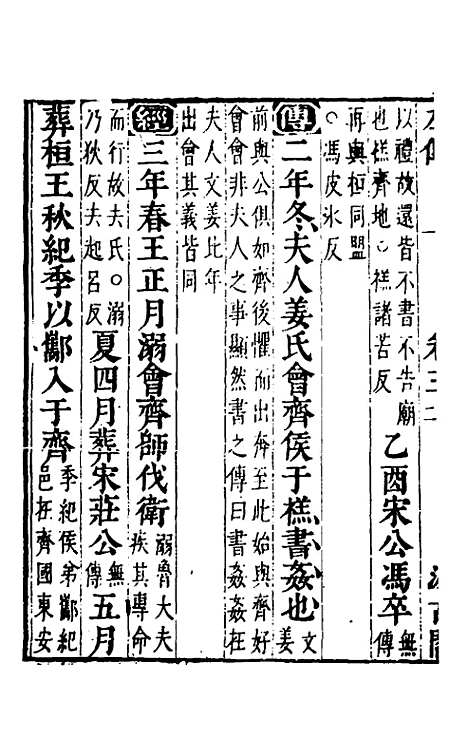 以禮故還皆不書不告廟
也禚齊地○禚諸若反
乙酉宋公馮卒無傳
再與桓同盟
○馮皮氷反
傳二年冬夫人姜氏會齊侯于禚書姦也文姜
前與公俱如齊後懼而出奔至此始與齊好
會會非夫人之事顯然書之傳曰書姦姦在
夫人文姜比年
出會其義皆同
經三年春王正月溺會齊師伐衛溺魯大夫
疾其專命
而行故去氏○溺
乃狄反去起呂反
夏四月葬宋莊公無傳五月
葬桓王秋紀季以酅入于齊季紀侯弟酅紀
邑在齊國東安